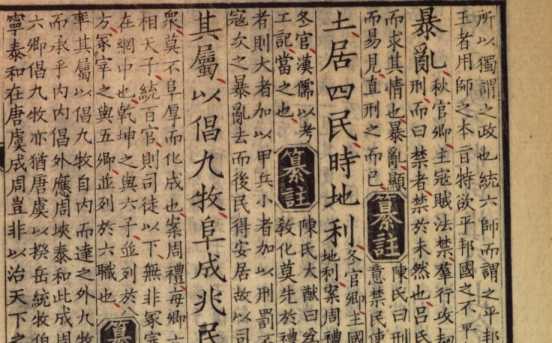 所以獨謂之政也統六師而謂之平邦
王者用師之本旨特欲平邦國之不平
暴亂
秋官卿主寇賊法禁羣行攻刼
刑而曰禁者禁於未然也呂氏
而求其情也暴亂顯
而易見直刑之而已
纂註
陳氏曰刑
意禁民使
土居四民時地利
冬官卿主國
地利案周禮
冬官漢儒以考
工記當之也
纂註
陳氏大猷曰
敎化莫先於禮
者則大者加以甲兵小者加以刑罰
寇次之暴亂去而後民得安居故以司
其屬以倡九牧阜成兆民
衆莫不阜厚而化成也案周禮每卿
相天子統百官則司徒以下無非冢宰
在網中也乾坤之與六子並列於
方冢宰之與五卿並列於六職也
纂
率其屬以倡九牧自內而達之外九牧
而承乎內內倡外應周挾泰和此成周
六卿倡九牧亦猶唐虞以揆岳統牧伯
寧泰和在唐虞成周豈非以治天下之